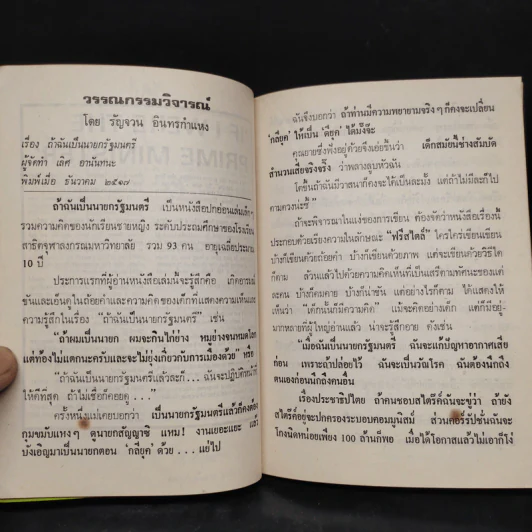 วรรณกรรมวิจารณ์
โดย รัญจวน อินทรกำแหง
เรื่อง ถ้าฉันเป็นนายกรัฐมนตรี
ผู้จัดทำ เลิศ อานันทนะ
พิมพ์เมื่อ ธันวาคม ๒๕๑๗
ถ้าฉันเป็นนายกรัฐมนตรี เป็นหนังสือปกอ่อนเล่มเล็กๆ
รวมความคิดของนักเรียนชายหญิง ระดับประถมศึกษาของโรงเรียน
สาธิตจุฬาลงกรณมหาวิทยาลัย รวม 93 คน อายุเฉลี่ยประมาณ
10 ปี
ประการแรกที่ผู้อ่านหนังสือเล่มนี้จะรู้สึกคือ เกิดอารมณ์
ขันและเอ็นดูในถ้อยคำและความคิดของเด็กที่แสดงความเห็นและ
ความรู้สึกในเรื่อง "ถ้าฉันเป็นนายกรัฐมนตรี" เช่น
ถ้าผมเป็นนายก ผมจะกินไก่ย่าง หมูย่างจนหมดโลก
แต่ท้องไม่แตกนะครับและจะไม่ยุ่งเกี่ยวกับการเมืองด้วย หรือ
"ถ้าฉันเป็นนายกรัฐมนตรีแล้วละก็... ฉันจะปฏิบัติหน้าที่
ให้ดีที่สุด ถ้าไม่เชื่อก็คอยดู..."
ครั้งหนึ่งแม่เคยบอกว่า เป็นนายกรัฐมนตรีแล้วก็คงต้อง
กุมขมับแหงๆ ดูนายกสัญญาซิ แหม! งานเยอะแยะ แล้ว
บังเอิญมาเป็นนายกตอน 'กลียุค' ด้วย ... แย่ไป
ฉันจึงบอกว่า ถ้าท่านมีความพยายามจริงๆ ก็คงจะเปลี่ยน
'กลียุค' ให้เป็น 'ดียุค' ได้มั้งจ๊ะ
คุณยายซึ่งฟังอยู่ด้วยจึงเอ่ยขึ้นว่า เด็กสมัยนี้ช่างสัมบัด
สำนวนเสียจริงจริ๊ง ว่าพลางลูบหัวฉัน
โตขึ้นถ้าฉันมีวาสนาก็คงจะได้เป็นละมั้ง แต่ถ้าไม่มีละก็ไป
ตามดวงน่ะซี้"
ถ้าจะพิจารณาในแง่ของการเขียน ต้องจัดว่าหนังสือเรื่องนี้
ประกอบด้วยเรียงความในลักษณะ "ฟรีสไตล์" ใครใคร่เขียนเขียน
บ้างก็เขียนด้วยถ้อยคำ บ้างก็เขียนด้วยภาพ แต่จะเขียนด้วยวิธีใด
ก็ตาม ล้วนแล้วไปด้วยความคิดเห็นที่เป็นเสรีตามทัศนะของแต่
ละคน บ้างก็คมคาย บ้างก็น่าขัน แต่อย่างไรก็ตาม ได้แสดงให้
เห็นว่า "เด็กนั้นก็มีความคิด" แม้จะคิดอย่างเด็ก แต่ก็มีอยู่-
มากหลายที่ผู้ใหญ่อ่านแล้ว น่าจะรู้สึกอาย ดังเช่น
เมื่อฉันเป็นนายกรัฐมนตรี ฉันจะแก้ปัญหาอากาศเสีย
ก่อน เพราะถ้าปล่อยไว้ ฉันจะเป็นวัณโรค ฉันต้องนึกถึง
ตนเองก่อนนึกถึงคนอื่น
เรื่องประชาธิปไตย ถ้าคนชอบสไตร๊ค์ฉันจะขู่ว่า ถ้ายัง
สไตร๊ค์อยู่จะปกครองระบอบคอมมูนิสม์ ส่วนคอร์รัปชั่นฉันจะ
โกงนิดหน่อยเพียง 100 ล้านก็พอ เมื่อได้โอกาสแล้วไม่เอาก็โง่